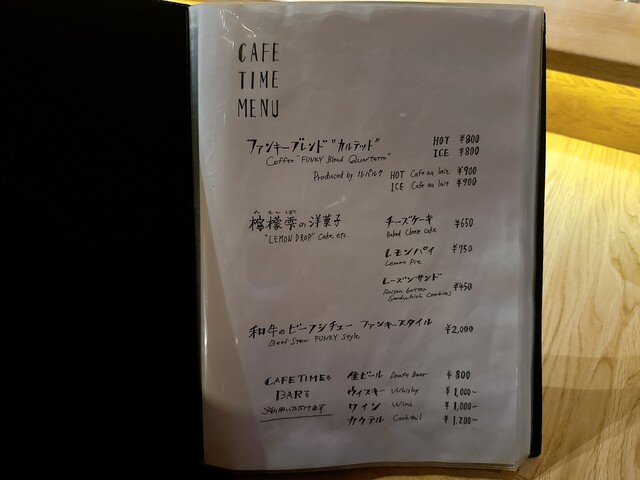 CAFE
TIME
MENU
ファンキーブレンド"カルテット" HOT ¥800
Coffee "FUNKY Blend Quartetto" ICE ¥800
Produced by ルパルク HOT Cafe au lait ¥900
ICE Cafe au lait ¥900
檸檬雫の洋菓子 チーズケーキ ¥650
"LEMON DROP" Cake, etc. Baked Cheese cake
レモンパイ ¥750
Lemon Pie
レーズンサンド ¥450
Raisen butter
Sandwhich Cookies
和牛のビーフシチュー ファンキースタイル ¥2,000
Beef Stew FUNKY Style
CAFE TIMEも 生ビール Draft Beer ¥800
BARを ウィスキー Whisky ¥1,000~
ワイン Wine ¥1,000~
カクテル Cocktail ¥1,200~